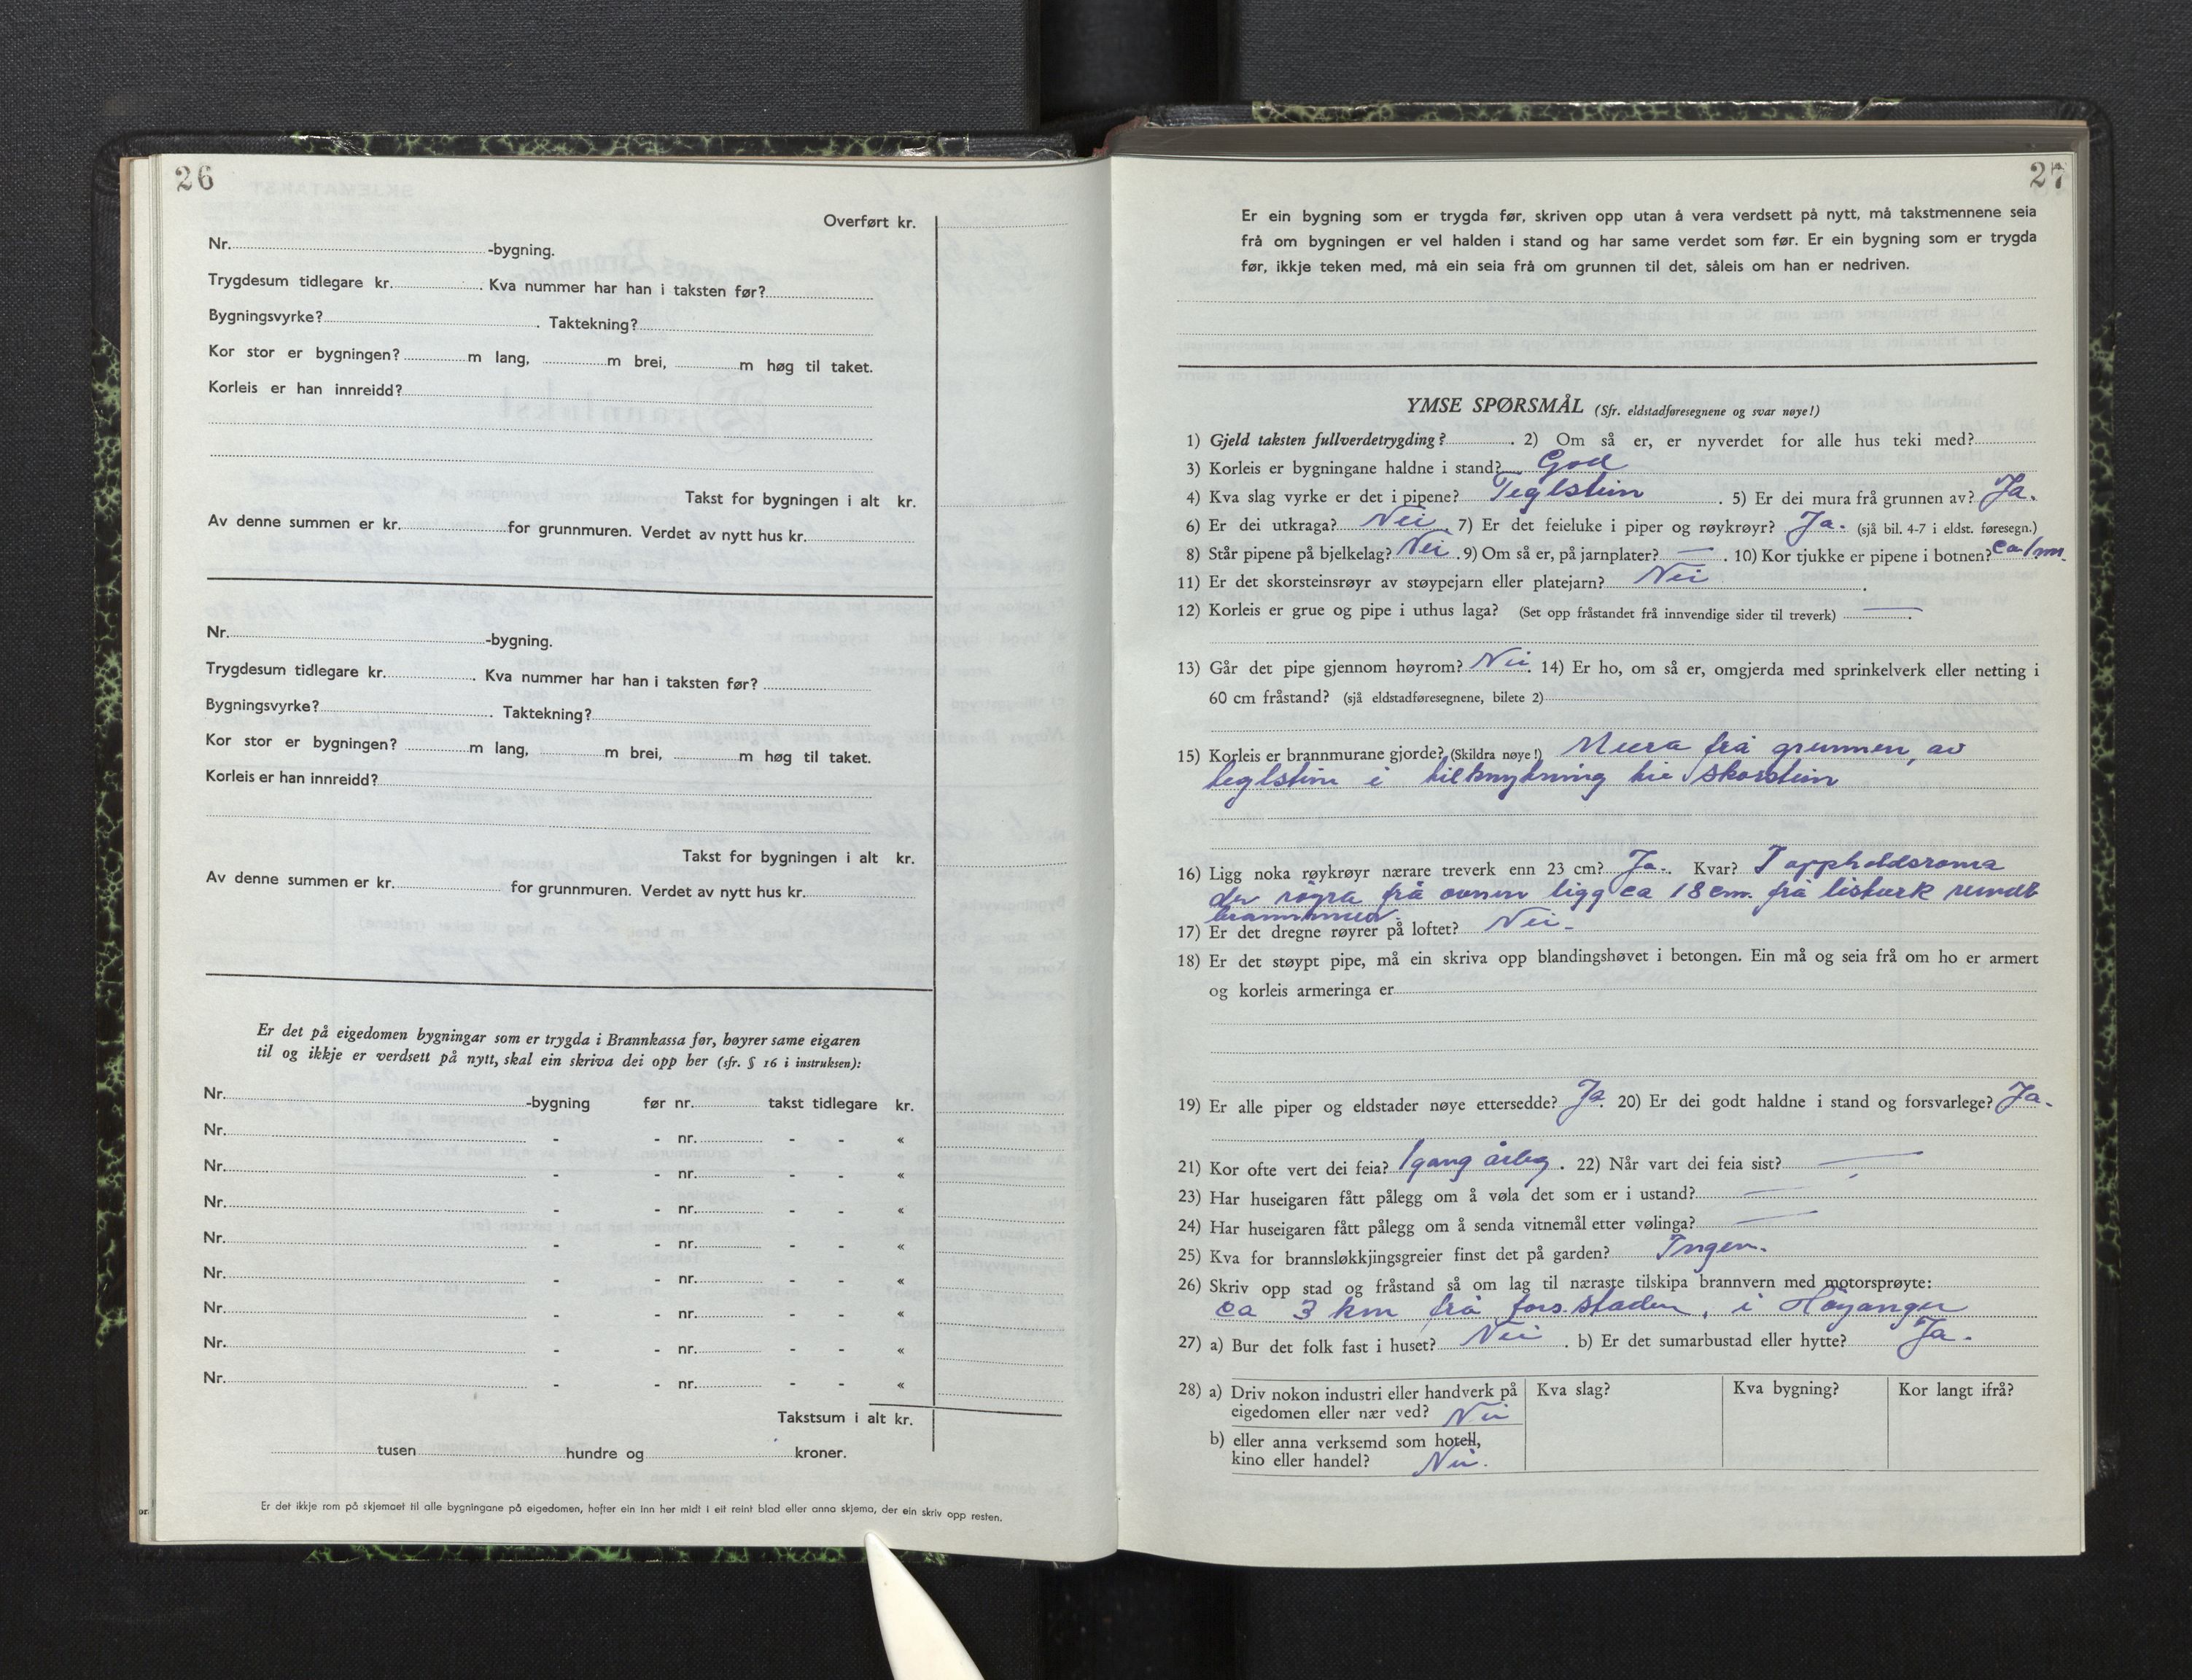 26
Overført kr.
Nr. -bygning.
Trygdesum tidlegare kr. . Kva nummer har han i taksten før?
Bygningsvyrke? . Taktekning?
Kor stor er bygningen? m lang, m brei, m høg til taket.
Korleis er han innreidd?
Takst for bygningen i alt kr.
Av denne summen er kr. for grunnmuren. Verdet av nytt hus kr.
Nr. -bygning.
Trygdesum tidlegare kr. . Kva nummer har han i taksten før?
Bygningsvyrke? . Taktekning?
Kor stor er bygningen? m lang, m brei, m høg til taket.
Korleis er han innreidd?
Takst for bygningen i alt kr.
Av denne summen er kr. for grunnmuren. Verdet av nytt hus kr.
Er det på eigedomen bygningar som er trygda i Brannkassa før, høyrer same eigaren
til og ikkje er verdsett på nytt, skal ein skriva dei opp her (sfr. § 16 i instruksen):
Nr. -bygning før nr. takst tidlegare kr.
Nr. - - nr. - - «
Nr. - - nr. - - «
Nr. - - nr. - - «
Nr. - - nr. - - «
Nr. - - nr. - - «
Nr. - - nr. - - «
Nr. - - nr. - - «
Nr. - - nr. - - «
Takstsum i alt kr.
tusen hundre og kroner.
Er det ikkje rom på skjemaet til alle bygningane på eigedomen, hefter ein inn her midt i eit reint blad eller anna skjema, der ein skriv opp resten.
27
Er ein bygning som er trygda før, skriven opp utan å vera verdsett på nytt, må takstmennene seia
frå om bygningen er vel halden i stand og har same verdet som før. Er ein bygning som er trygda
før, ikkje teken med, må ein seia frå om grunnen til det, såleis om han er nedriven.
YMSE SPØRSMÅL (Sfr. eldstadføresegnene og svar nøye!)
1) Gjeld taksten fullverdetrygding? . 2) Om så er, er nyverdet for alle hus teki med?
3) Korleis er bygningane haldne i stand? God
4) Kva slag vyrke er det i pipene? Teglstein . 5) Er dei mura frå grunnen av? Ja.
6) Er dei utkraga? Nei . 7) Er det feieluke i piper og røykrøyr? Ja. (sjå bil. 4-7 i eldst. føresegn.)
8) Står pipene på bjelkelag? Nei . 9) Om så er, på jarnplater? — . 10) Kor tjukke er pipene i botnen? ca 1 m.
11) Er det skorsteinsrøyr av støypejarn eller platejarn? Nei .
12) Korleis er grue og pipe i uthus laga? (Set opp fråstandet frå innvendige sider til treverk) — .
13) Går det pipe gjennom høyrom? Nei . 14) Er ho, om så er, omgjerda med sprinkelverk eller netting i
60 cm fråstand? (sjå eldstadføresegnene, bilete 2)
15) Korleis er brannmurane gjorde? (Skildra nøye!) Mura frå grunnen, av
teglstein i tilknytning til skorstein
16) Ligg noka røykrøyr nærare treverk enn 23 cm? Ja. Kvar? I oppholdsroma
der røyra frå ovnen ligg ca 18 cm. frå listverk rundt
brannmur.
17) Er det dregne røyrer på loftet? Nei.
18) Er det støypt pipe, må ein skriva opp blandingshøvet i betongen. Ein må og seia frå om ho er armert
og korleis armeringa er
19) Er alle piper og eldstader nøye ettersedde? Ja. 20) Er dei godt haldne i stand og forsvarlege? Ja.
21) Kor ofte vert dei feia? 1 gang årleg . 22) Når vart dei feia sist? —
23) Har huseigaren fått pålegg om å vøla det som er i ustand? —
24) Har huseigaren fått pålegg om å senda vitnemål etter vølinga? —
25) Kva for brannsløkkjingsgreier finst det på garden? Ingen.
26) Skriv opp stad og fråstand så om lag til næraste tilskipa brannvern med motorsprøyte:
ca 3 km frå fors.staden, i Høyanger
27) a) Bur det folk fast i huset? Nei . b) Er det sumarbustad eller hytte? Ja.
28) a) Driv nokon industri eller handverk på Kva slag? Kva bygning? Kor langt ifrå?
eigedomen eller nær ved? Nei
b) eller anna verksemd som hotell,
kino eller handel? Nei.